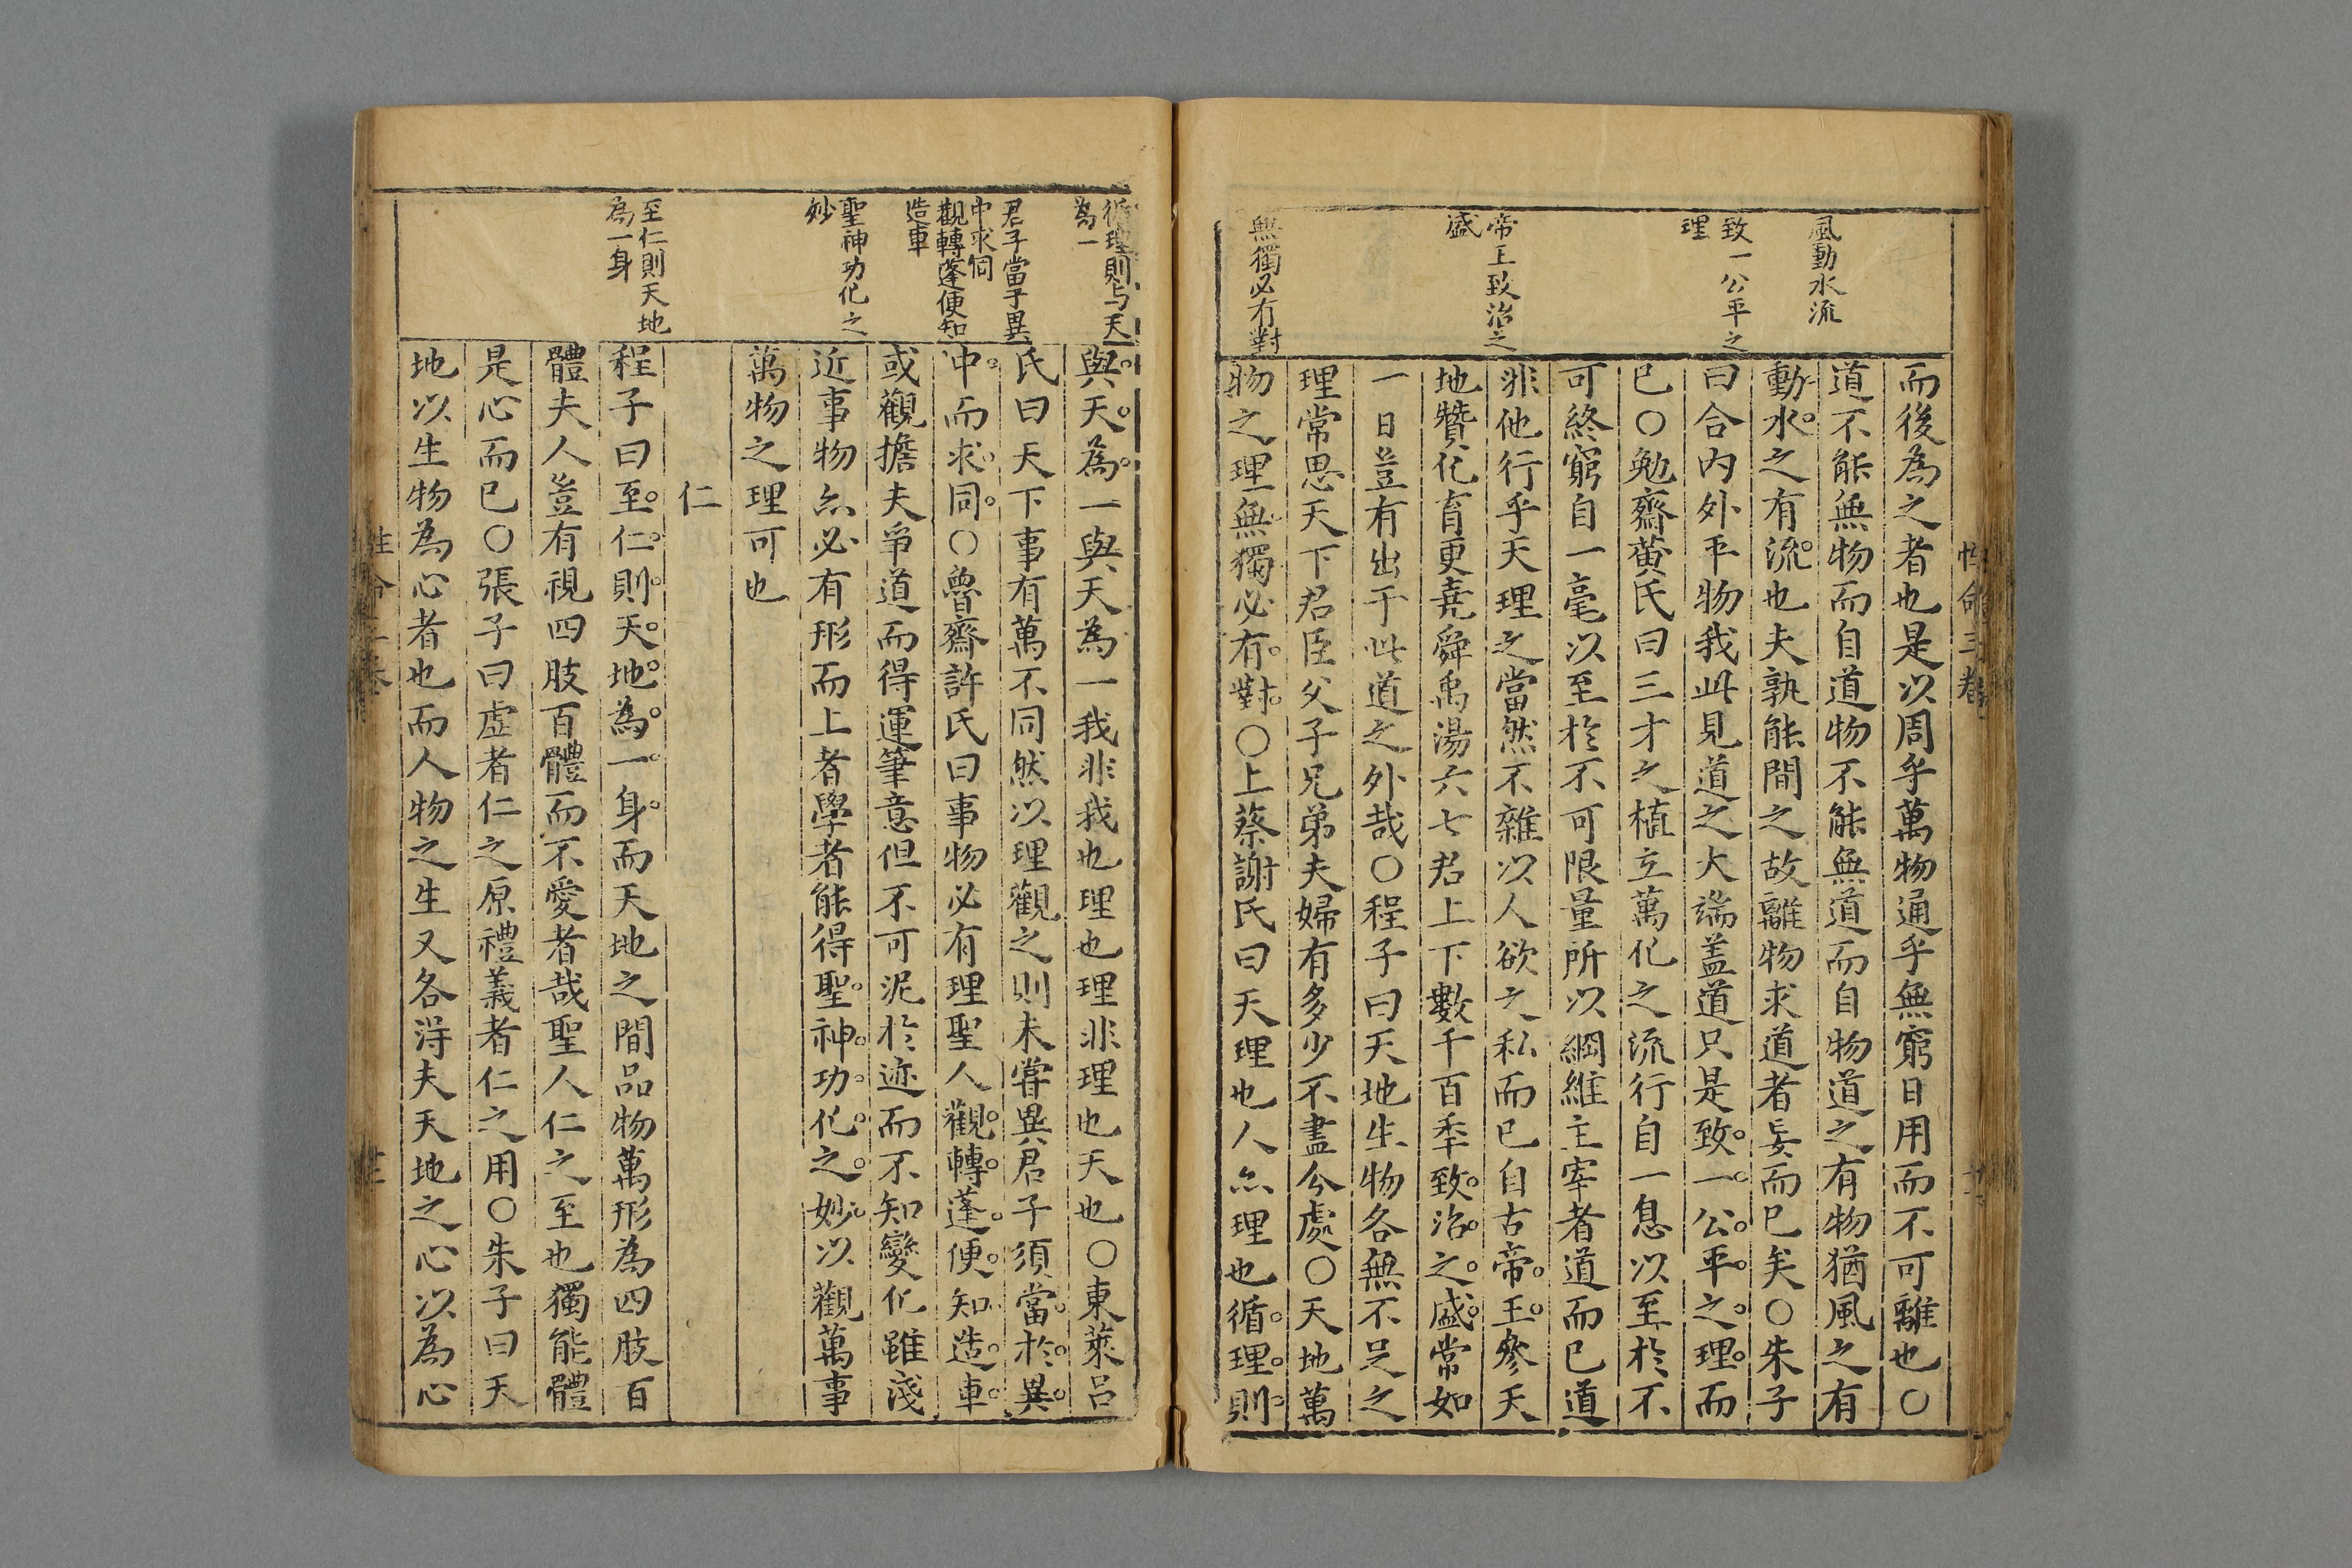 風動水流
致一公平之
理
帝王致治之
盛
無獨必有對
而後為之者也是以周乎萬物通乎無窮日用而不可離也○
道不能無物而自道物不能無道而自物道之有物猶風之有
動水之有流也夫孰能間之故離物求道者妄而已矣○朱子
曰合內外平物我此見道之大端盖道只是致一公平之理而
已○勉齋黃氏曰三才之植立萬化之流行自一息以至於不
可終窮自一毫以至於不可限量所以綱維主宰者道而已道
非他行乎天理之當然不雜以人欲之私而已自古帝王參天
地贊化育更堯舜禹湯六七君上下數千百秊致治之盛常如
一日豈有出于此道之外哉○程子曰天地生物各無不足之
理常思天下君臣父子兄弟夫婦有多少不盡今處○天地萬
物之理無獨必有對○上蔡謝氏曰天理也人亦理也循理則
性命三卷
循理則与天
為一
君子當于異
中求同
觀轉蓬便知
造車
聖神功化之
妙
至仁則天地
為一身
與天為一與天為一我非我也理也理非理也天也○東萊呂
氏曰天下事有萬不同然以理觀之則未嘗異君子須當於異
中而求同○魯齋許氏曰事物必有理聖人觀轉蓬便知造車
或觀擔夫爭道而得運筆意但不可泥於迹而不知變化雖淺
近事物亦必有形而上者學者能得聖神功化之妙以觀萬事
萬物之理可也
仁
程子曰至仁則天地為一身而天地之間品物萬形為四肢百
體夫人豈有視四肢百體而不愛者哉聖人仁之至也獨能體
是心而已○張子曰虛者仁之原禮義者仁之用○朱子曰天
地以生物為心者也而人物之生又各淂夫天地之心以為心